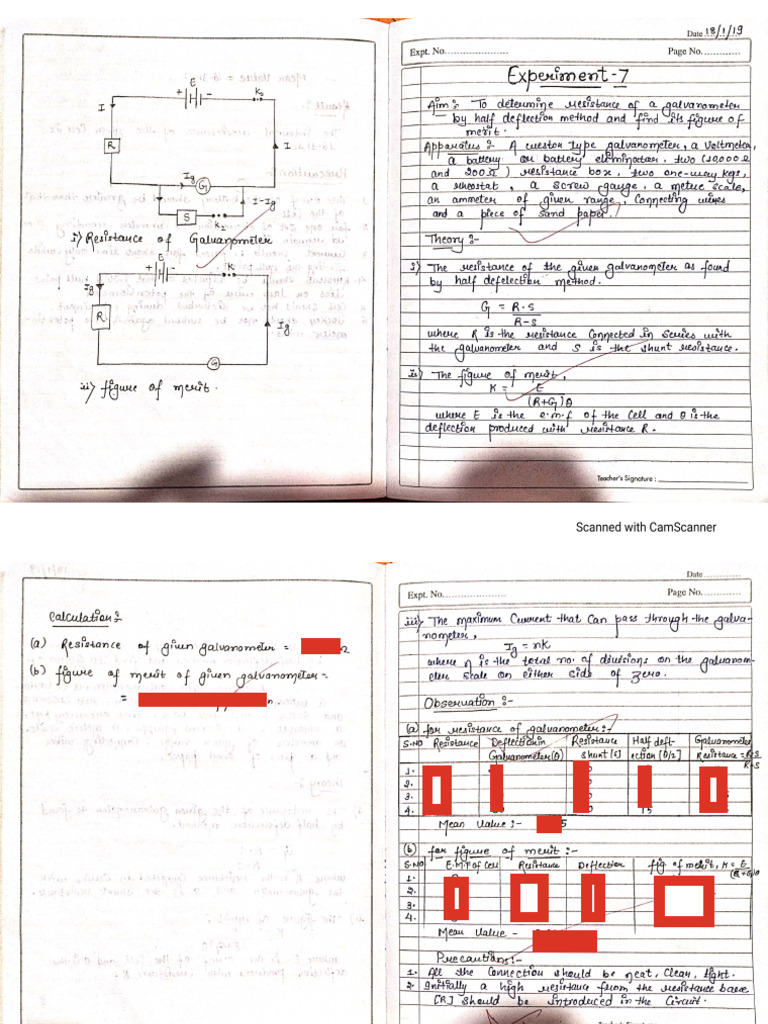 E
+
-
K₁
I
R
I
Ig
G
I-Ig
S
K₂
i) Resistance of Galvanometer
E
+
-
K
Ig
R
Ig
G
ii) figure of merit.
Date 18/1/19
Expt. No.
Page No.
Experiment-7
Aim:- To determine resistance of a galvanometer
by half deflection method and find its figure of
merit.
Apparatus:- A weston type galvanometer, a voltmeter,
a battery or battery eliminator, two (10,000Ω
and 200Ω) resistance box, two one-way keys,
a rheostat, a screw gauge, a metre scale,
an ammeter of given range, Connecting wires
and a piece of sand paper.
Theory:-
i) The resistance of the given galvanometer as found
by half defelection method.
G = R·S
R-S
where R is the resistance Connected in series with
the galvanometer and S is the shunt resistance.
ii) The figure of merit,
K = E
(R+G)θ
where E is the e.m.f of the Cell and θ is the
deflection produced with resistance R.
Teacher's Signature :
Scanned with CamScanner
Calculation:-
(a) Resistance of given galvanometer =
(b) figure of merit of given galvanometer =
=
Date
Expt. No.
Page No.
iii) The maximum Current that Can pass through the galva-
nometer,
Ig = nK
where n is the total no. of divisions on the galvanom-
eter scale on either side of zero.
Observation:-
(a) for resistance of galvanometer:-
S.NO Resistance Deflection in Resistance Half defl- Galvanometer
Galvanometer(θ) shunt [s] ection [θ/2] Resistance = R·S
R-S
1.
2.
3.
4. 15
Mean Value:- 5
(b) for figure of merit:-
S.NO E.M.F of Cell Resistance Deflection fig of merit, K = E
(R+G)θ
1.
2.
3.
4.
Mean Value -
Precautions:-
1. All the Connection should be neat, Clean, tight.
2. Initially a high resistance from the resistance box
[R] should be introduced in the Circuit.